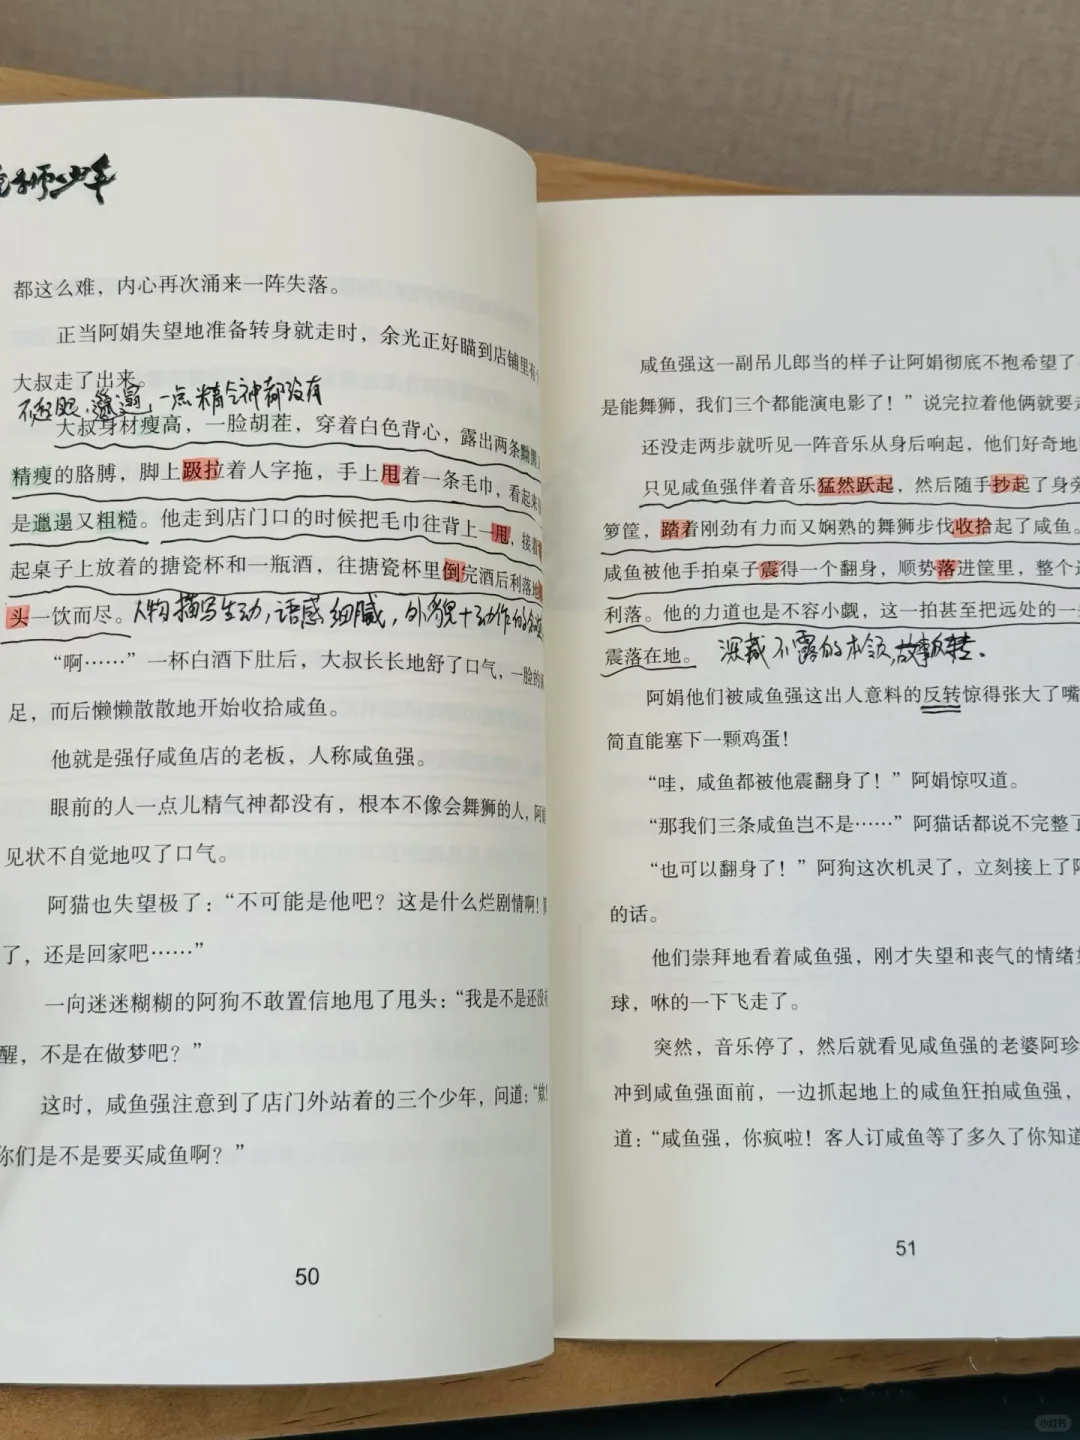 雄狮少年
都这么难，内心再次涌来一阵失落。
正当阿娟失望地准备转身就走时，余光正好瞄到店铺里有
大叔走了出来。
不起眼，邋遢，一点精气神都没有
大叔身材瘦高，一脸胡茬，穿着白色背心，露出两条黝黑
精瘦的胳膊，脚上趿拉着人字拖，手上甩着一条毛巾，看起来
是邋遢又粗糙。他走到店门口的时候把毛巾往背上一甩，接着
起桌子上放着的搪瓷杯和一瓶酒，往搪瓷杯里倒完酒后利落地
头一饮而尽。人物描写生动，语感细腻，外貌+动作的
“啊……”一杯白酒下肚后，大叔长长地舒了口气，一脸的
足，而后懒懒散散地开始收拾咸鱼。
他就是强仔咸鱼店的老板，人称咸鱼强。
眼前的人一点儿精气神都没有，根本不像会舞狮的人，阿
见状不自觉地叹了口气。
阿猫也失望极了：“不可能是他吧？这是什么烂剧情啊！
了，还是回家吧……”
一向迷迷糊糊的阿狗不敢置信地甩了甩头：“我是不是还没
醒，不是在做梦吧？”
这时，咸鱼强注意到了店门外站着的三个少年，问道：“欸！
你们是不是要买咸鱼啊？”
50
咸鱼强这一副吊儿郎当的样子让阿娟彻底不抱希望了
是能舞狮，我们三个都能演电影了！”说完拉着他俩就要
还没走两步就听见一阵音乐从身后响起，他们好奇地
只见咸鱼强伴着音乐猛然跃起，然后随手抄起了身旁
箩筐，踏着刚劲有力而又娴熟的舞狮步伐收拾起了咸鱼。
咸鱼被他手拍桌子震得一个翻身，顺势落进筐里，整个
利落。他的力道也是不容小觑，这一拍甚至把远处的一
震落在地。 深藏不露的本领，故事反转。
阿娟他们被咸鱼强这出人意料的反转惊得张大了嘴
简直能塞下一颗鸡蛋！
“哇，咸鱼都被他震翻身了！”阿娟惊叹道。
“那我们三条咸鱼岂不是……”阿猫话都说不完整了
“也可以翻身了！”阿狗这次机灵了，立刻接上了阿
的话。
他们崇拜地看着咸鱼强，刚才失望和丧气的情绪
球，咻的一下飞走了。
突然，音乐停了，然后就看见咸鱼强的老婆阿珍
冲到咸鱼强面前，一边抓起地上的咸鱼狂拍咸鱼强，
道：“咸鱼强，你疯啦！客人订咸鱼等了多久了你知道
51
小红书